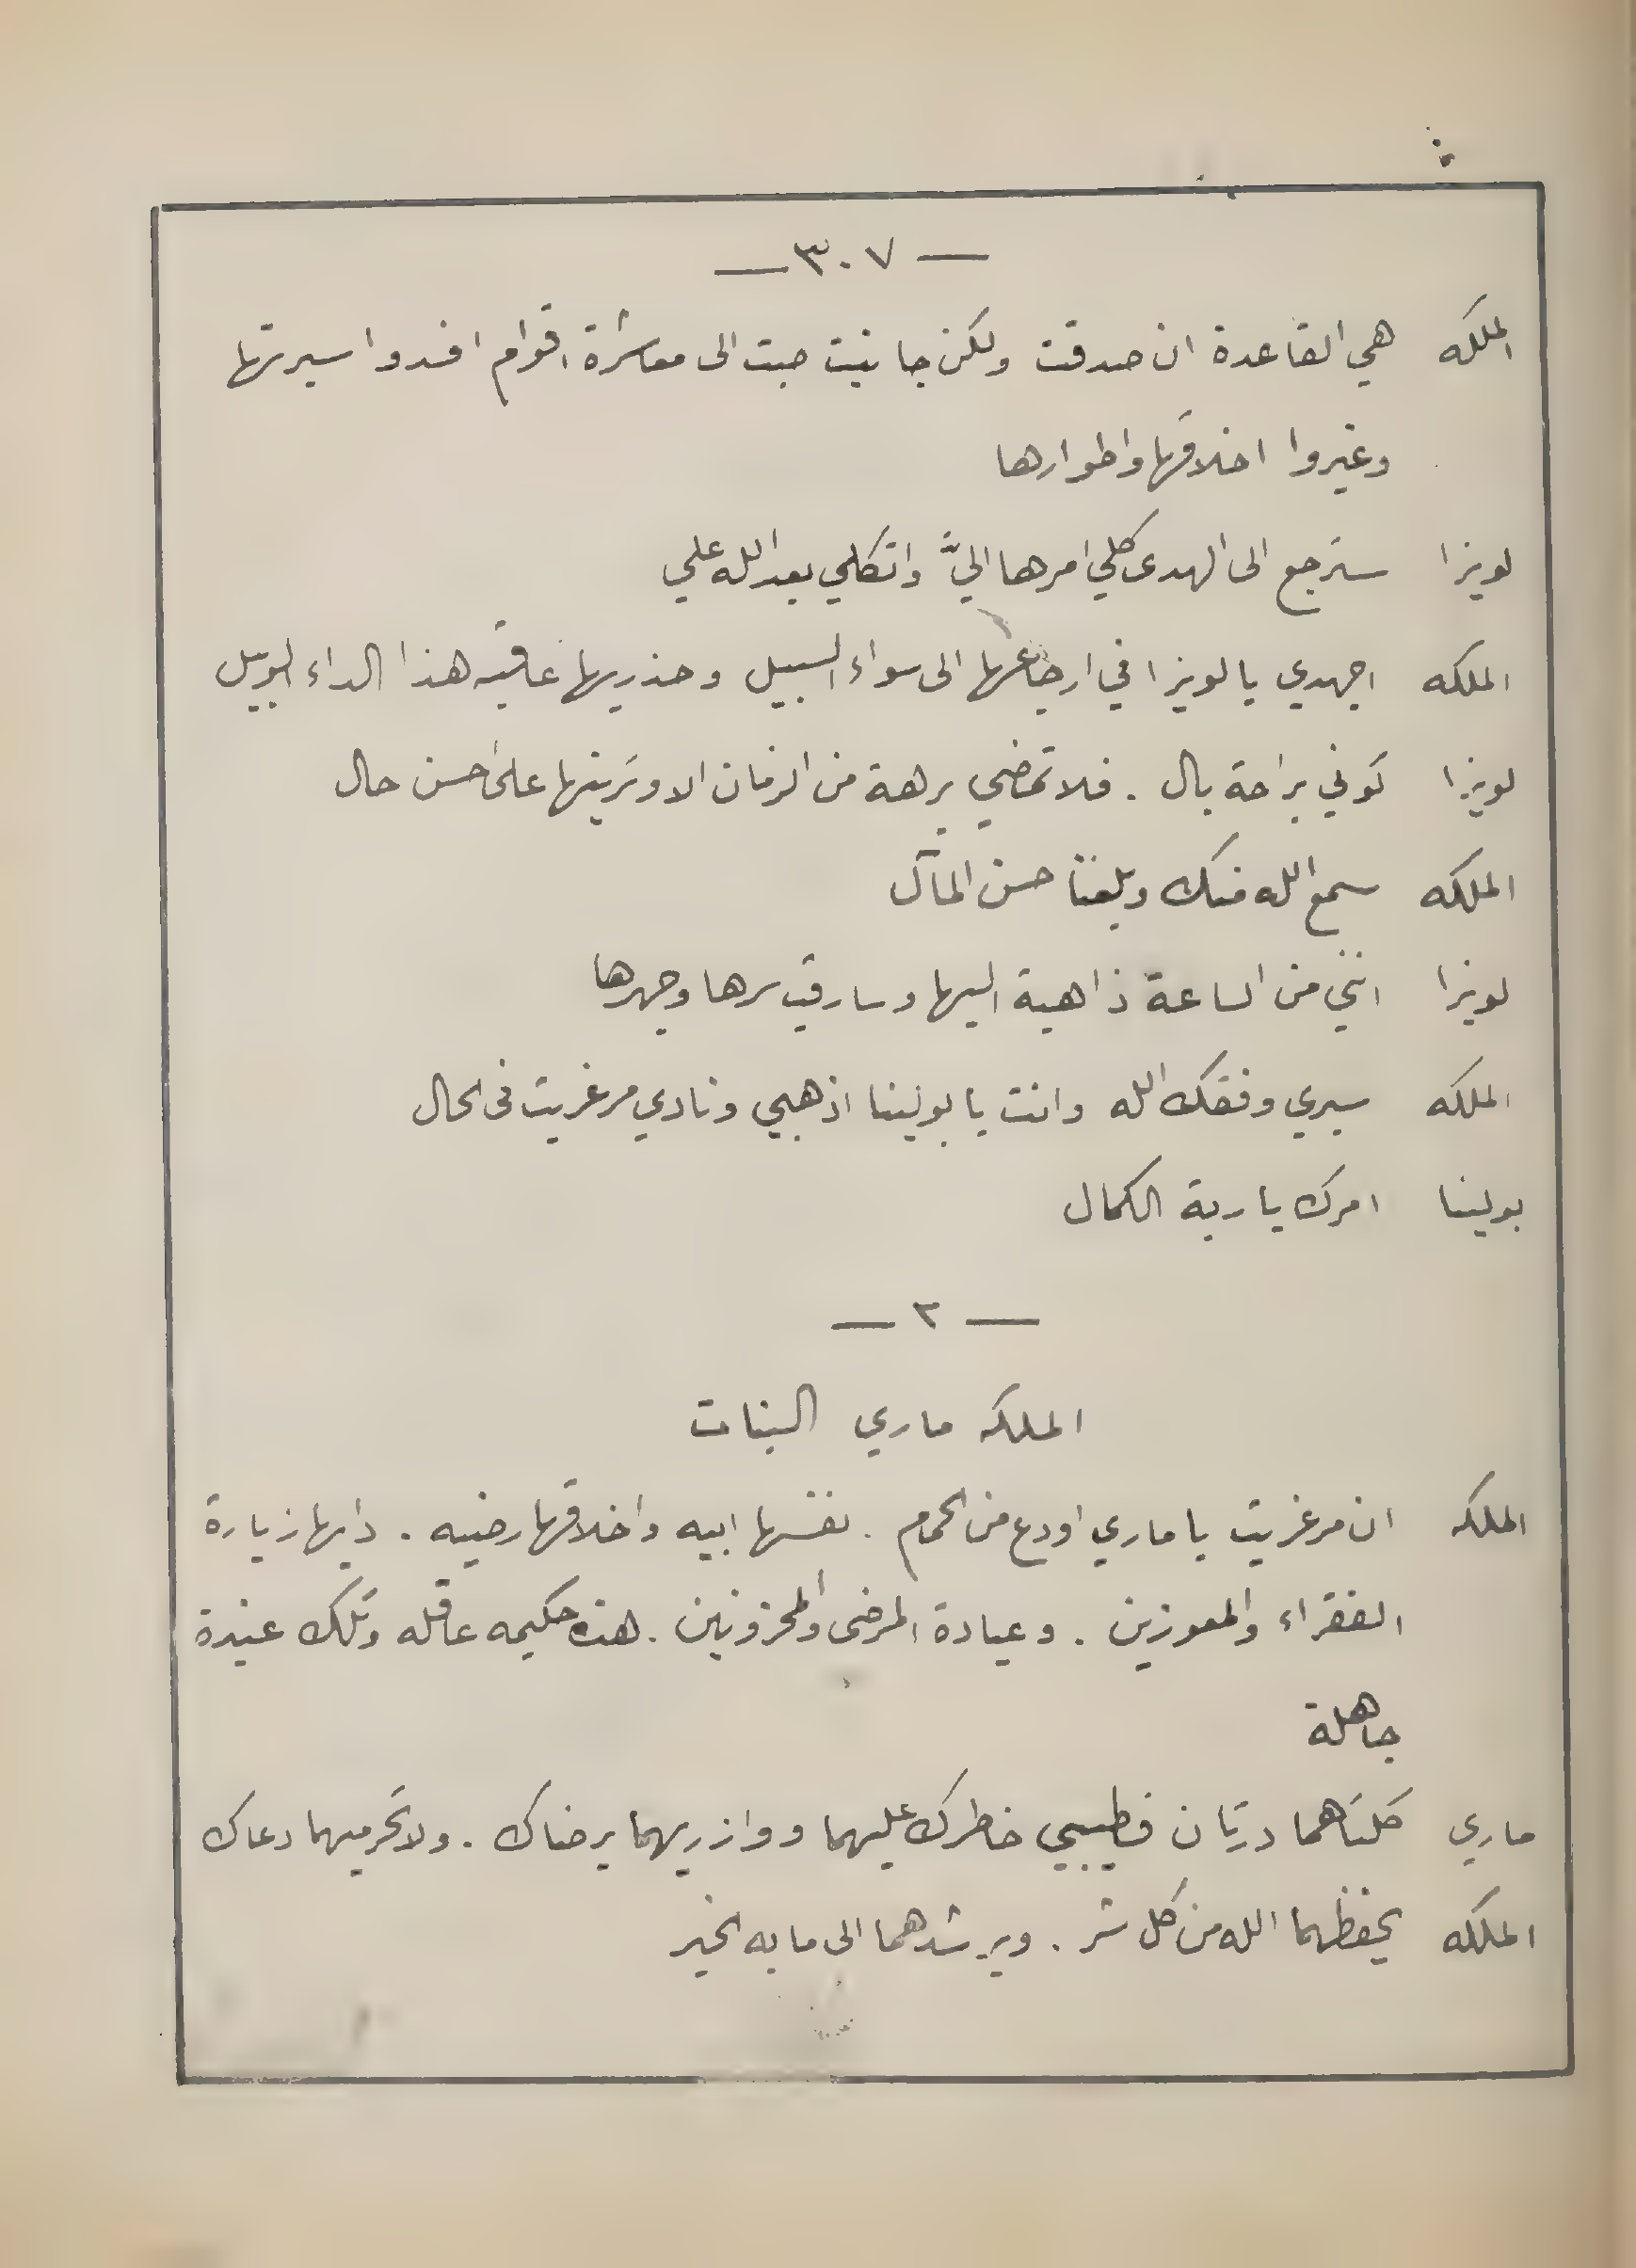 — ٣٠٧ —
الملكه هي القاعدة ان صدقت ولكن جانيت صبت الى معاشرة اقوام افسدوا سيرتها
وغيروا اخلاقها واطوارها
لويزا سترجع الى الهدى كلي امرها اليَّ واتكلي بعد الله علي
الملكه اجهدي يا لويزا في ارجاعها الى سواء السبيل وحذريها عاقبه هذا الداء الوبيل
لويزا كوني براحة بال . فلا تمضي برهة من الزمان الا وترينها على احسن حال
الملكه سمع الله منك وبلغنا حسن المآل
لويزا انني من الساعة ذاهبة اليها وسارقب سرها وجهرها
الملكه سيري وفقك الله وانت يا بولينا اذهبي ونادي مرغريت في الحال
بولينا امرك يا ربة الكمال
— ٢ —
الملكه ماري البنات
الملكه ان مرغريت يا ماري اودع من الحمام . نفسها ابيه واخلاقها رضيه . دابها زيارة
الفقراء والمعوزين . وعيادة المرضى والمحزونين . هذه حكيمه عاقله وتلك عنيدة
جاهلة
ماري كلتاهما درتان فطيبي خاطرك عليهما ووازريهما برضاك . ولا تحرميهما دعاك
الملكه يحفظهما الله من كل شر . ويرشدهما الى ما به الخير